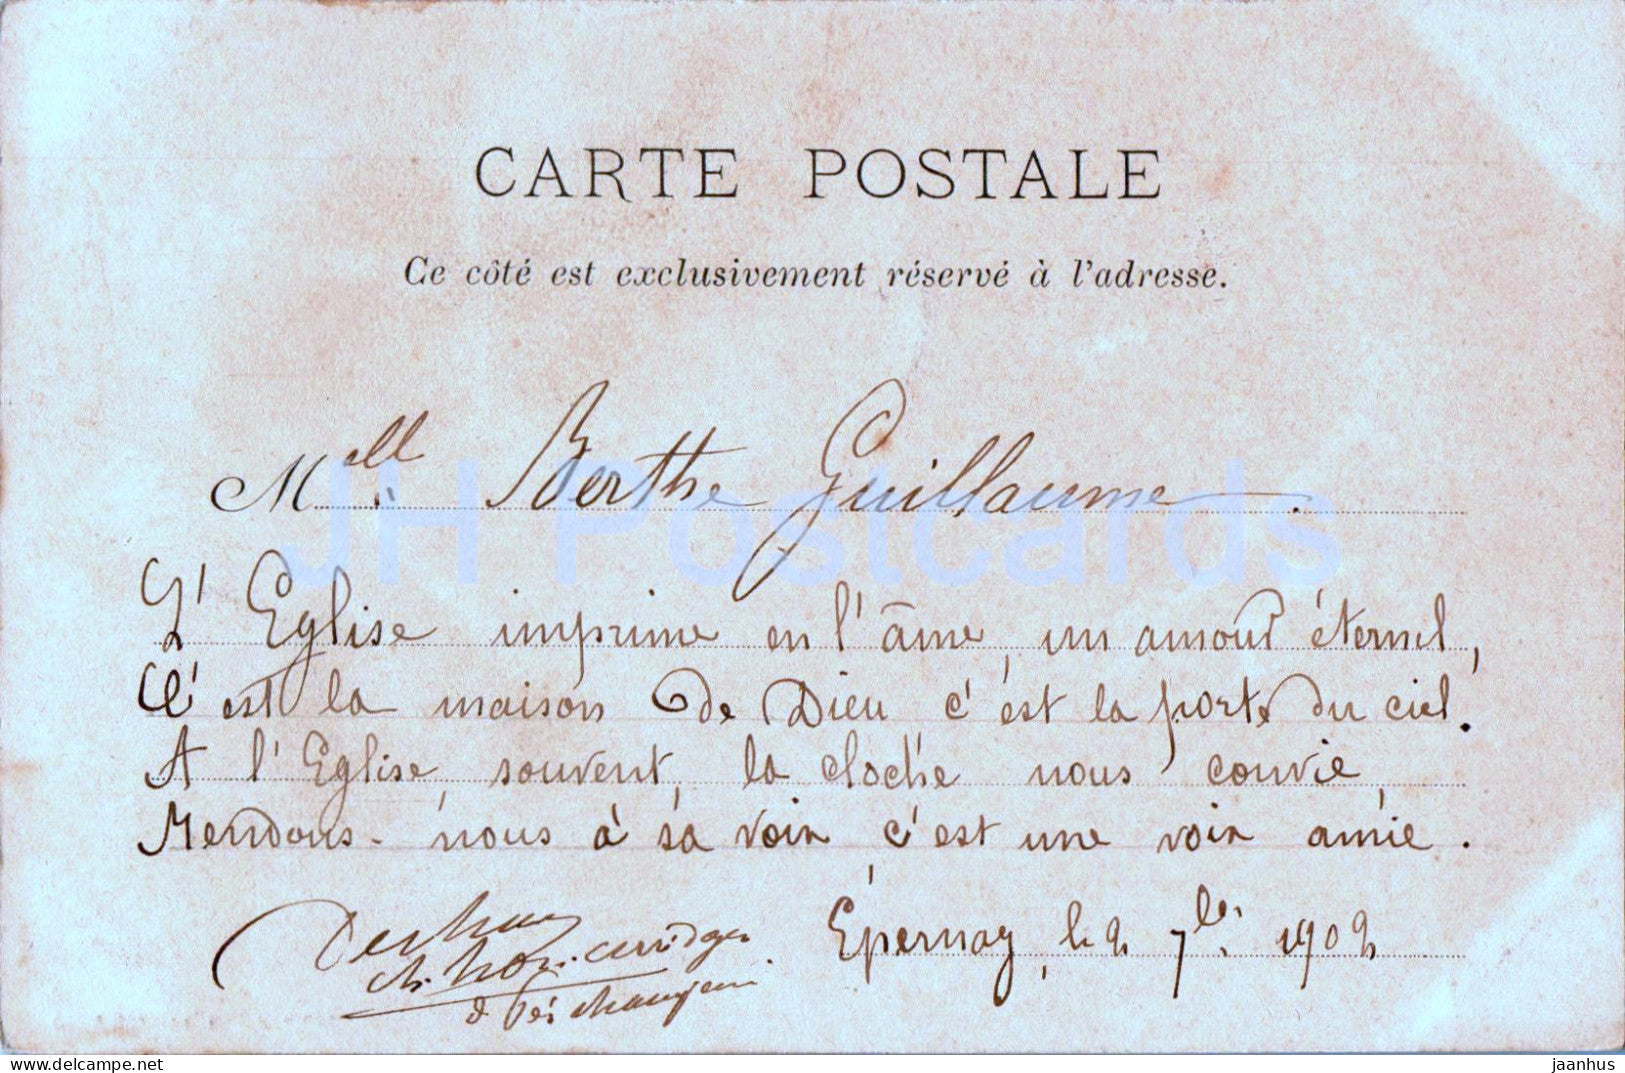 CARTE POSTALE
Ce côté est exclusivement réservé à l'adresse.
Mell Berthe Guillaume.
JH Postcards
L'Eglise imprime en l'âme, un amour éternel,
C'est la maison de Dieu c'est la porte du ciel.
A l'Eglise, souvent, la cloche nous convie,
Rendons-nous à sa voix c'est une voix amie.
Épernay, le 2 7bre 1902
delcampe.net
jaanhus